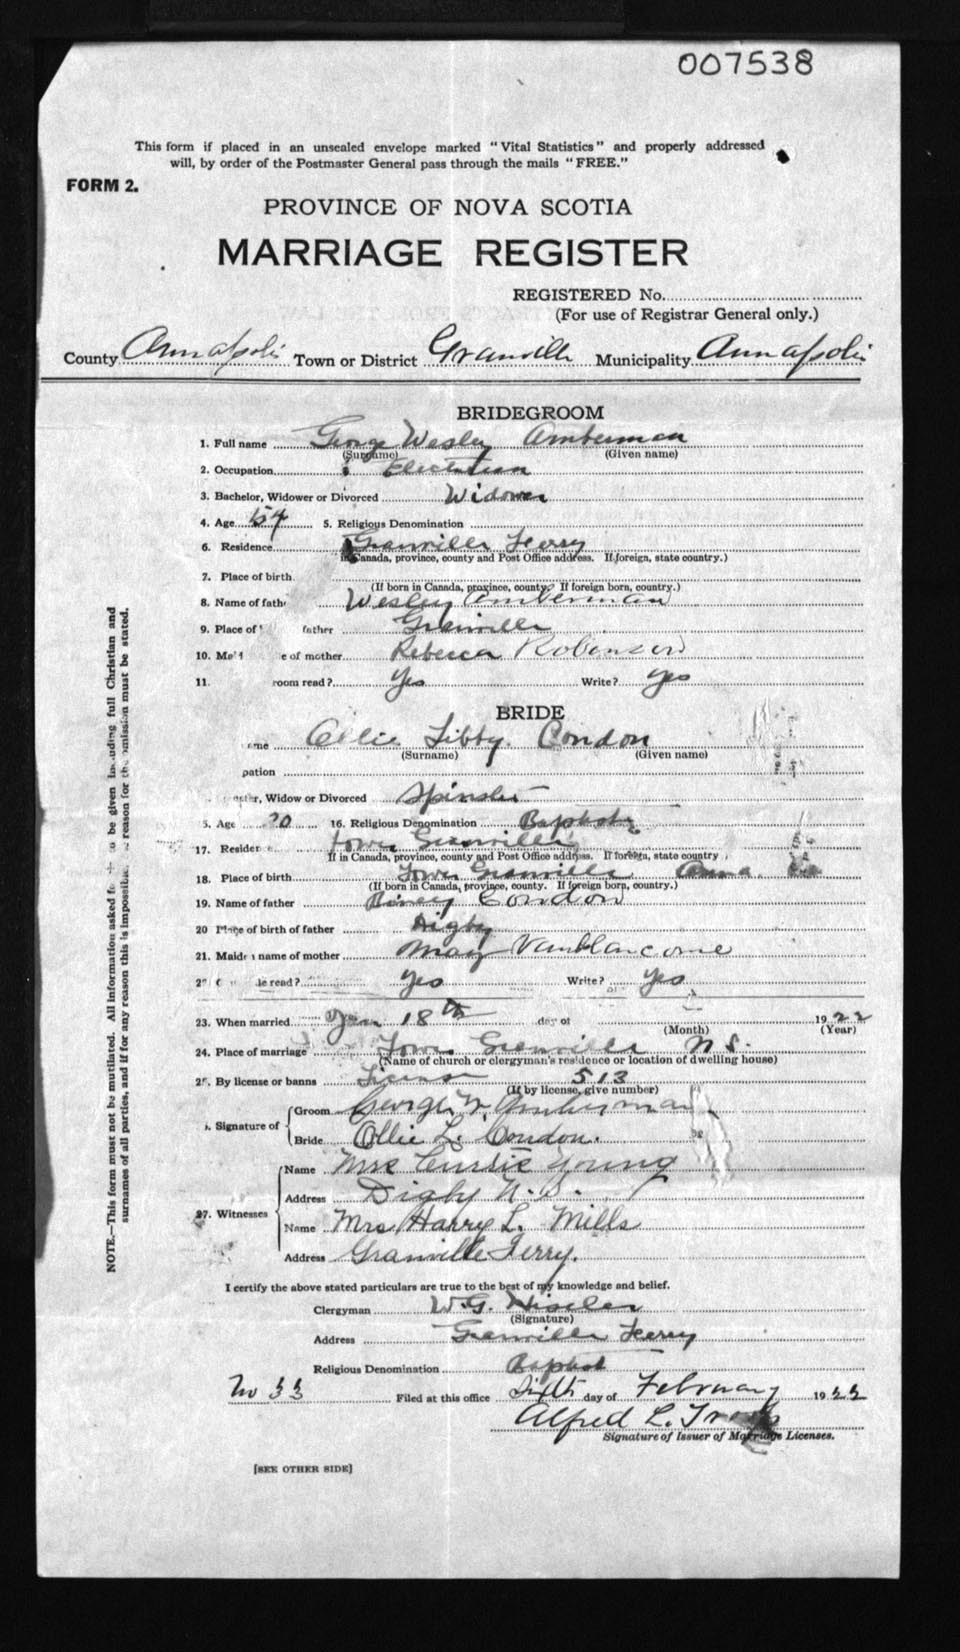 007538
This form if placed in an unsealed envelope marked "Vital Statistics" and properly addressed
will, by order of the Postmaster General pass through the mails "FREE."
FORM 2.
PROVINCE OF NOVA SCOTIA
MARRIAGE REGISTER
REGISTERED No.
(For use of Registrar General only.)
County Annapolis Town or District Granville Municipality Annapolis
BRIDEGROOM
1. Full name George Wesley Amberman
(Surname) (Given name)
2. Occupation Electrician
3. Bachelor, Widower or Divorced Widower
4. Age 54 5. Religious Denomination
6. Residence Granville Ferry
If in Canada, province, county and Post Office address. If foreign, state country.)
7. Place of birth
(If born in Canada, province, county? If foreign born, country.)
8. Name of fath Wesley Amberman
9. Place of father Granville
10. e of mother Rebecca Robinson
11. room read? Yes Write? Yes
BRIDE
ame Ollie Libby Condon
(Surname) (Given name)
pation
ster, Widow or Divorced Spinster
5. Age 20 16. Religious Denomination Baptist
17. Residen Lower Granville
If in Canada, province, county and Post Office address. If foreign, state country
18. Place of birth Lower Granville Anna
(If born in Canada, province, county. If foreign born, country.)
19. Name of father Condon
20 Place of birth of father Digby
21. Maiden name of mother May Vanblancome
2 de read? Yes Write? Yes
23. When married Jan 18th day of 1922
(Month) (Year)
24. Place of marriage Lower Granville N S.
(Name of church or clergyman's residence or location of dwelling house)
25. By license or banns License 513
(If by license, give number)
Signature of Groom George W. Amberman
Bride Ollie L. Condon.
27. Witnesses Name Mrs Curtis Young
Address Digby N. S.
Name Mrs Harry L. Mills
Address Granville Ferry.
I certify the above stated particulars are true to the best of my knowledge and belief.
Clergyman W. G.
(Signature)
Address Granville Ferry
Religious Denomination Baptist
No 33 Filed at this office Sixth day of February 1922
Alfred L.
Signature of Issuer of Marriage Licenses.
[SEE OTHER SIDE]
NOTE.—This form must not be mutilated. All information asked fo to be given including full Christian and
surnames of all parties, and if for any reason this is impossible reason for the omission must be stated.